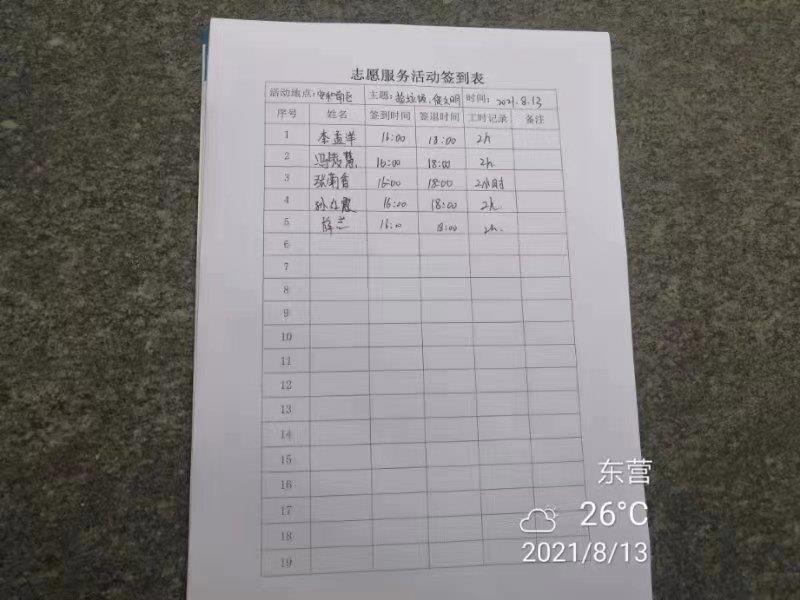 志愿服务活动签到表
活动地点：安和南区 主题：捡垃圾、促文明 时间：2021.8.13
序号 姓名 签到时间 签退时间 工时记录 备注
1 李孟洋 16:00 18:00 2h
2 冯秀慧 16:00 18:00 2h
3 张南香 16:00 18:00 2小时
4 孙 霞 16:00 18:00 2h
5 薛兰 16:0 18:00 2h.
6
7
8
9
10
11
12
13
14
15
16
17
18
19
东营
26°C
2021/8/13